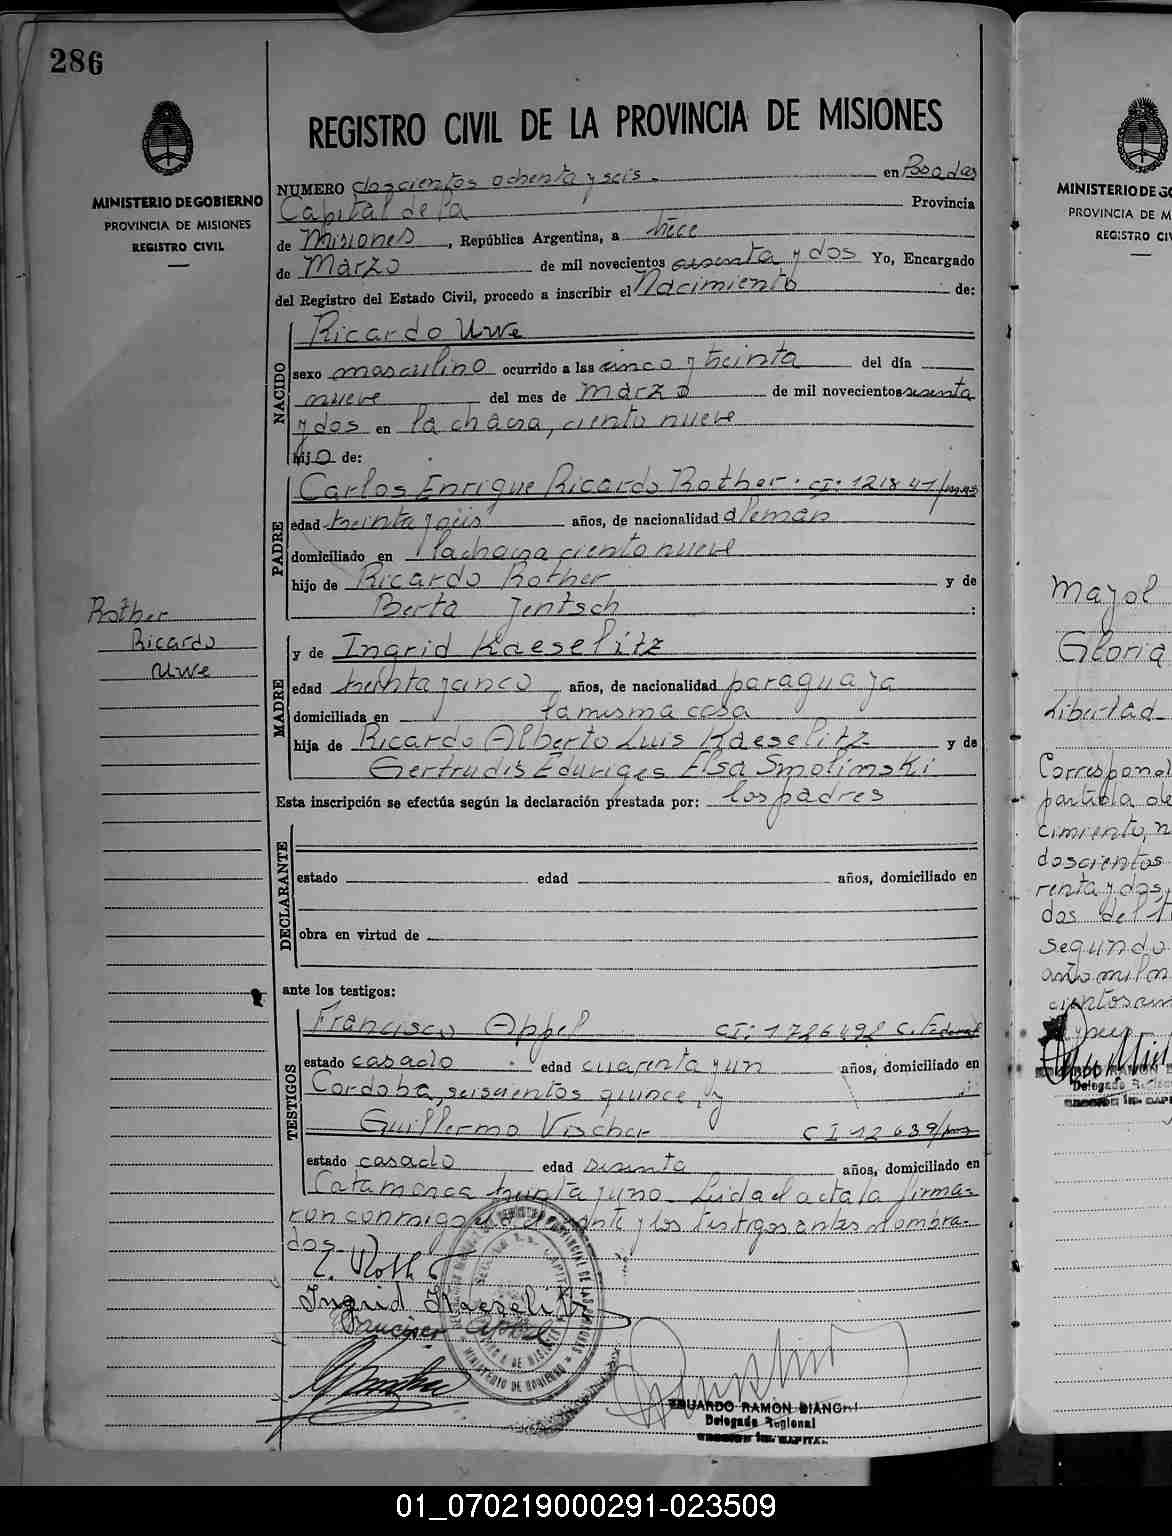 286
MINISTERIO DE GOBIERNO
PROVINCIA DE MISIONES
REGISTRO CIVIL
Rother
Ricardo
Uwe
REGISTRO CIVIL DE LA PROVINCIA DE MISIONES
NUMERO doscientos ochenta y seis. en Posadas
Capital de la Provincia
de Misiones, República Argentina, a trece
de Marzo de mil novecientos sesenta y dos Yo, Encargado
del Registro del Estado Civil, procedo a inscribir el Nacimiento de:
NACIDO
Ricardo Uwe
sexo masculino ocurrido a las cinco y treinta del día
nueve del mes de Marzo de mil novecientos sesenta
y dos en la chacra, ciento nueve
hijo de:
PADRE
Carlos Enrique Ricardo Rother. CI: 121841/
edad treinta y seis años, de nacionalidad alemán
domiciliado en la chacra ciento nueve
hijo de Ricardo Rother y de
Berta Jentsch :
MADRE
y de Ingrid Kaeselitz
edad treinta y cinco años, de nacionalidad paraguaya
domiciliada en la misma casa
hija de Ricardo Alberto Luis Kaeselitz y de
Gertrudis Eduriges Elsa Smolinski
Esta inscripción se efectúa según la declaración prestada por: los padres
DECLARANTE
estado edad años, domiciliado en
obra en virtud de
ante los testigos:
TESTIGOS
Francisco Appel CI: 1726492 C. Federal
estado casado edad cuarenta y un años, domiciliado en
Cordoba, seiscientos quince, y
Guillermo Vischer CI 12639/
estado casado edad sesenta años, domiciliado en
Catamarca treinta y uno. Leida el acta la firma-
ron conmigo y los testigos antes nombra-
dos.
Ingrid Kaeselitz
EDUARDO RAMON BIANCHI
Delegado Regional
MINISTERIO DE GOBIERNO
MINISTERIO DE GO
PROVINCIA DE M
REGISTRO CIV
Mayol
Gloria
Libertad
Correspon
partida de
cimiento, n
doscientos
renta y dos,
dos del
segundo
año mil n
cientos
RAMON
Delegado
01_070219000291-023509